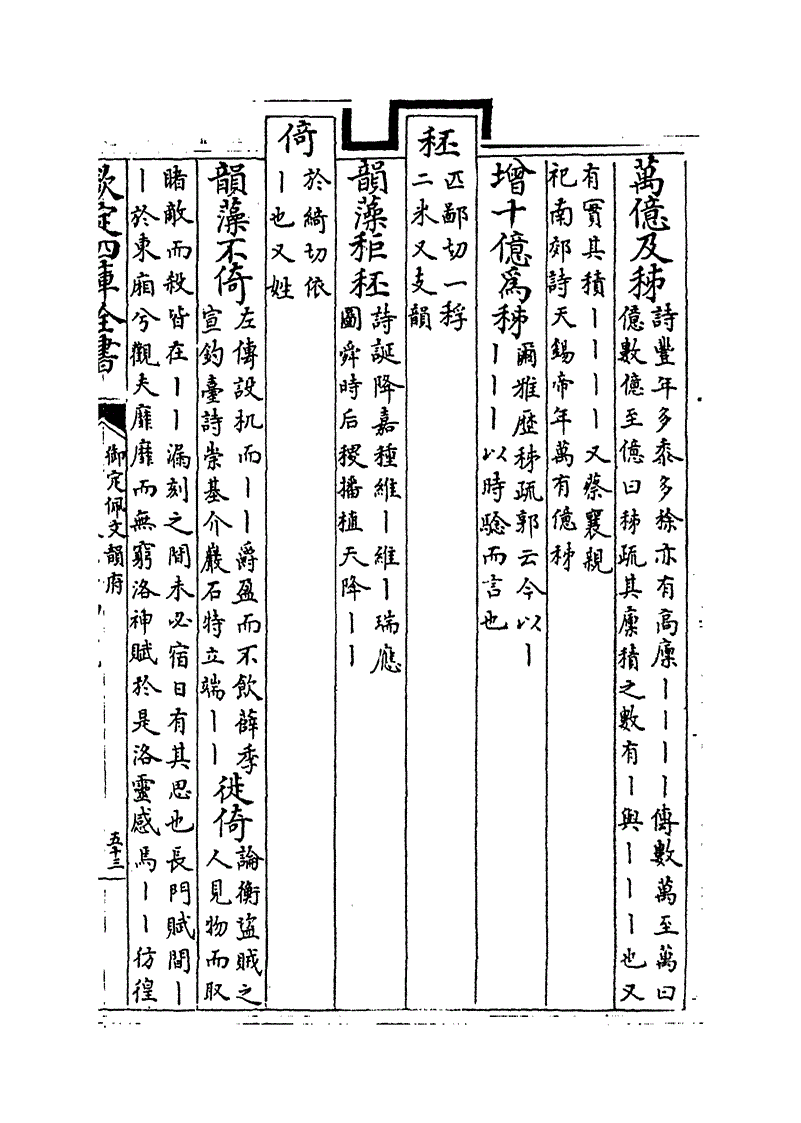 萬億及秭
詩豐年多黍多稌亦有高廩丨丨丨丨傳數萬至萬曰
億數億至億曰秭疏其廩積之數有丨與丨丨丨也又
有實其積丨丨丨丨又蔡襄親
祀南郊詩天錫帝年萬有億秭
增十億為秭
爾雅歴秭疏郭云今以丨
丨丨丨以時驗而言也
秠
匹鄙切一稃
二米又支韻
韻藻秬秠
詩誕降嘉種維丨維丨瑞應
圖舜時后稷播植天降丨丨
倚
於綺切依
丨也又姓
韻藻不倚
左傳設机而丨丨爵盈而不飲薛季
宣釣臺詩崇基介巖石特立端丨丨
徙倚
論衡盜賊之
人見物而取
睹敵而殺皆在丨丨漏刻之間未必宿日有其思也長門賦間丨
丨於東廂兮觀夫靡靡而無窮洛神賦於是洛靈感焉丨丨彷徨
欽定四庫全書
御定佩文韻府
五十三